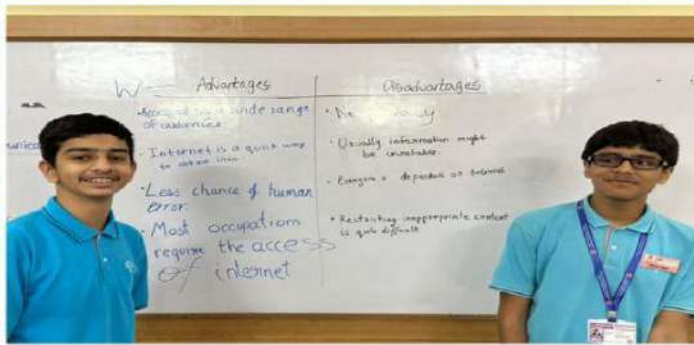 Advantages
wide range
of audiences
• Internet is a quick way
to obtain info.
• Less chance of human
error.
• Most occupation
require the access
of internet
Disadvantages
• No
• Usually information might
be unreliable.
• Everyone dependent on internet
• Restricting inappropriate content
is quite difficult